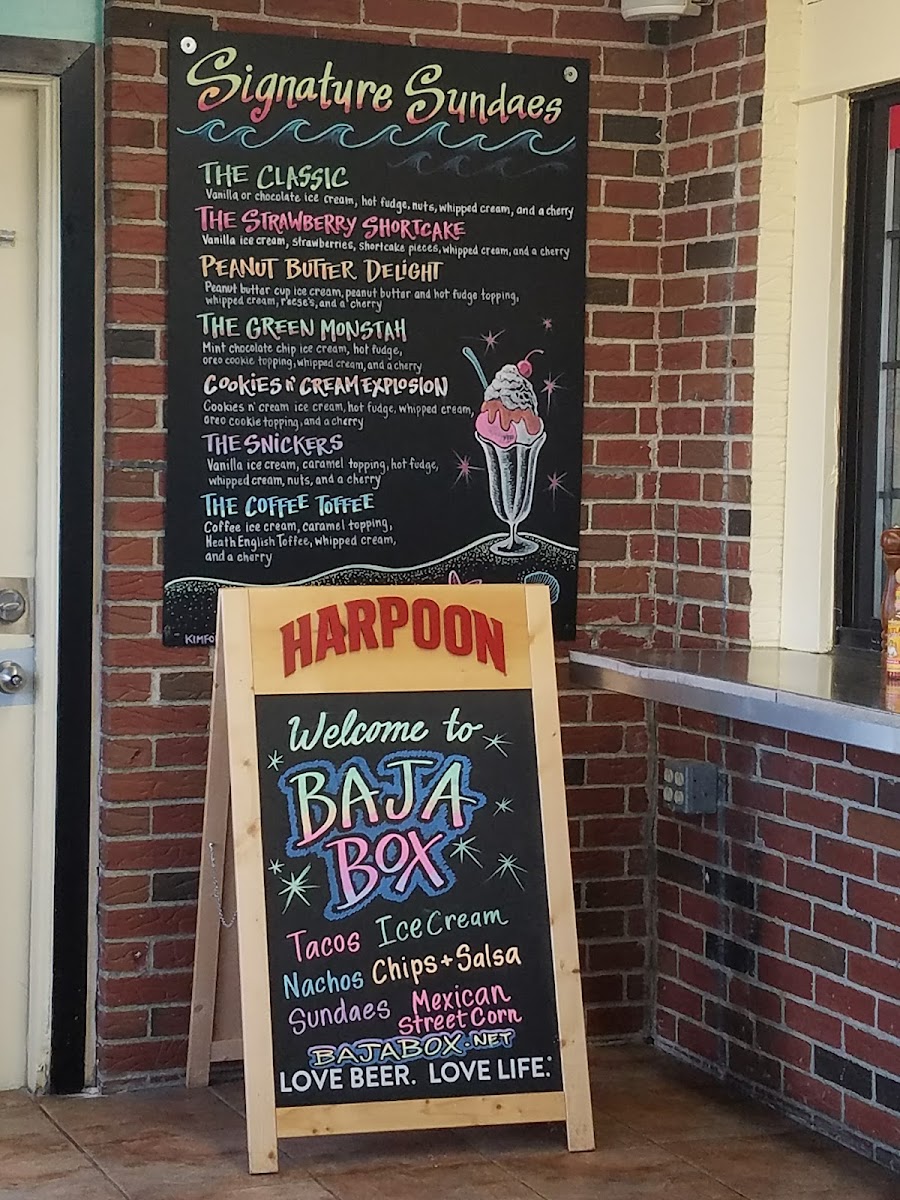 Signature Sundaes
THE CLASSIC
Vanilla or chocolate ice cream, hot fudge, nuts, whipped cream, and a cherry
THE STRAWBERRY SHORTCAKE
Vanilla ice cream, strawberries, shortcake pieces, whipped cream, and a cherry
PEANUT BUTTER DELIGHT
Peanut butter cup ice cream, peanut butter and hot fudge topping,
whipped cream, reese's, and a cherry
THE GREEN MONSTAH
Mint chocolate chip ice cream, hot fudge,
oreo cookie topping, whipped cream, and a cherry
COOKIES n' CREAM EXPLOSION
Cookies n' cream ice cream, hot fudge, whipped cream,
oreo cookie topping, and a cherry
THE SNICKERS
Vanilla ice cream, caramel topping, hot fudge,
whipped cream, nuts, and a cherry
THE COFFEE TOFFEE
Coffee ice cream, caramel topping,
Heath English Toffee, whipped cream,
and a cherry
HARPOON
Welcome to
BAJA
BOX
Tacos Ice Cream
Nachos Chips + Salsa
Sundaes Mexican
Street Corn
BAJABOX.NET
LOVE BEER. LOVE LIFE.